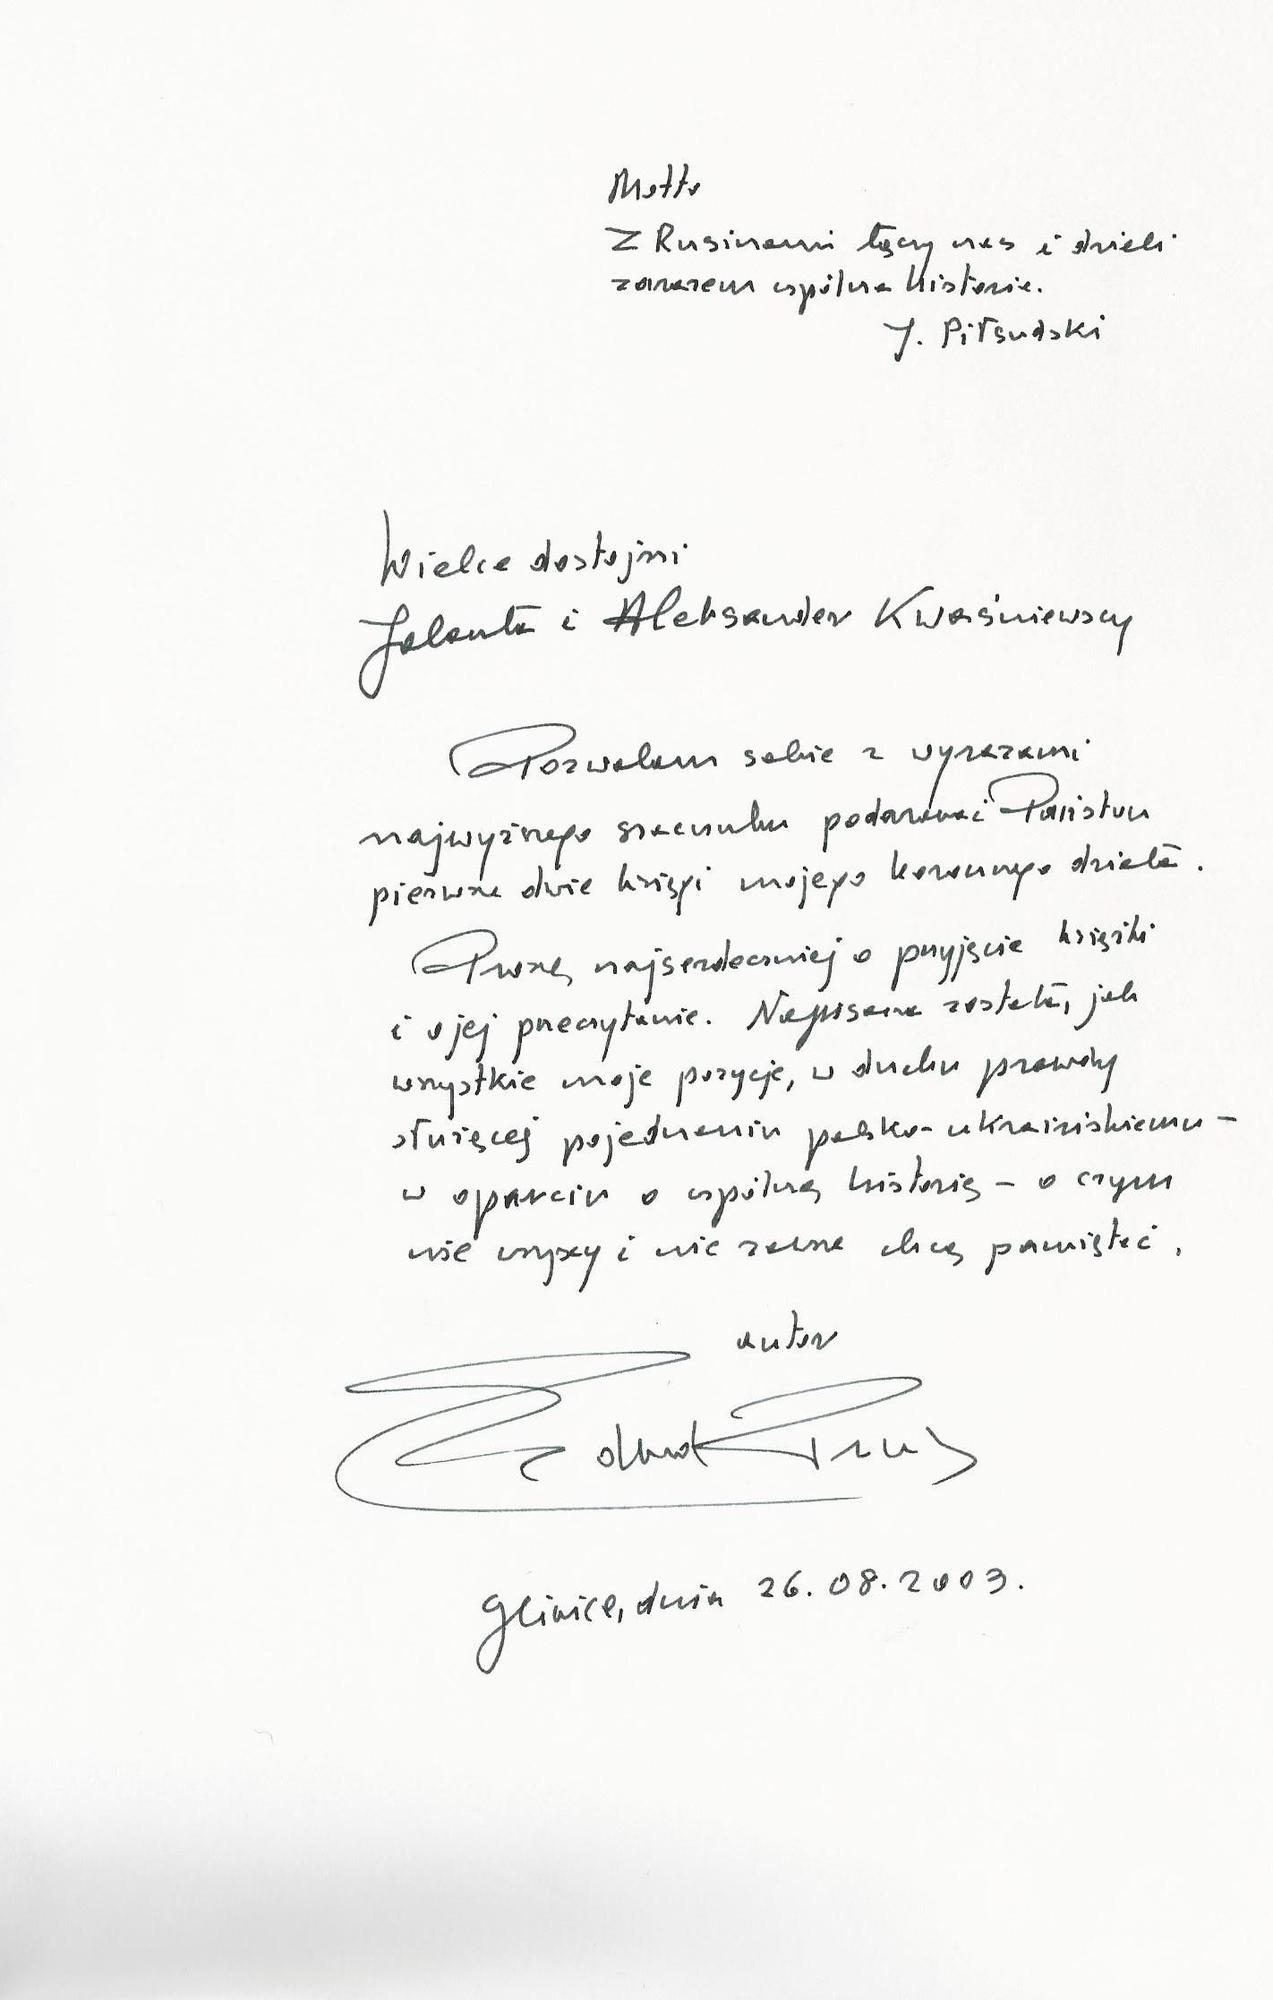 Motto
Z Rusinami łączy nas i dzieli
zarazem wspólna historia.
J. Piłsudski
Wielce dostojni
Jolanta i Aleksander Kwaśniewscy
Pozwalam sobie z wyrazami
najwyższego szacunku podarować Państwu
pierwsze dwie księgi mojego koronnego dzieła.
Proszę najserdeczniej o przyjęcie książki
i o jej przeczytanie. Napisana została, jak
wszystkie moje pozycje, w duchu prawdy
służącej pojednaniu polsko-ukraińskiemu –
w oparciu o wspólną historię – o czym
nie wszyscy i nie zawsze chcą pamiętać.
autor
Edward Prus
Gliwice, dnia 26.08.2003.